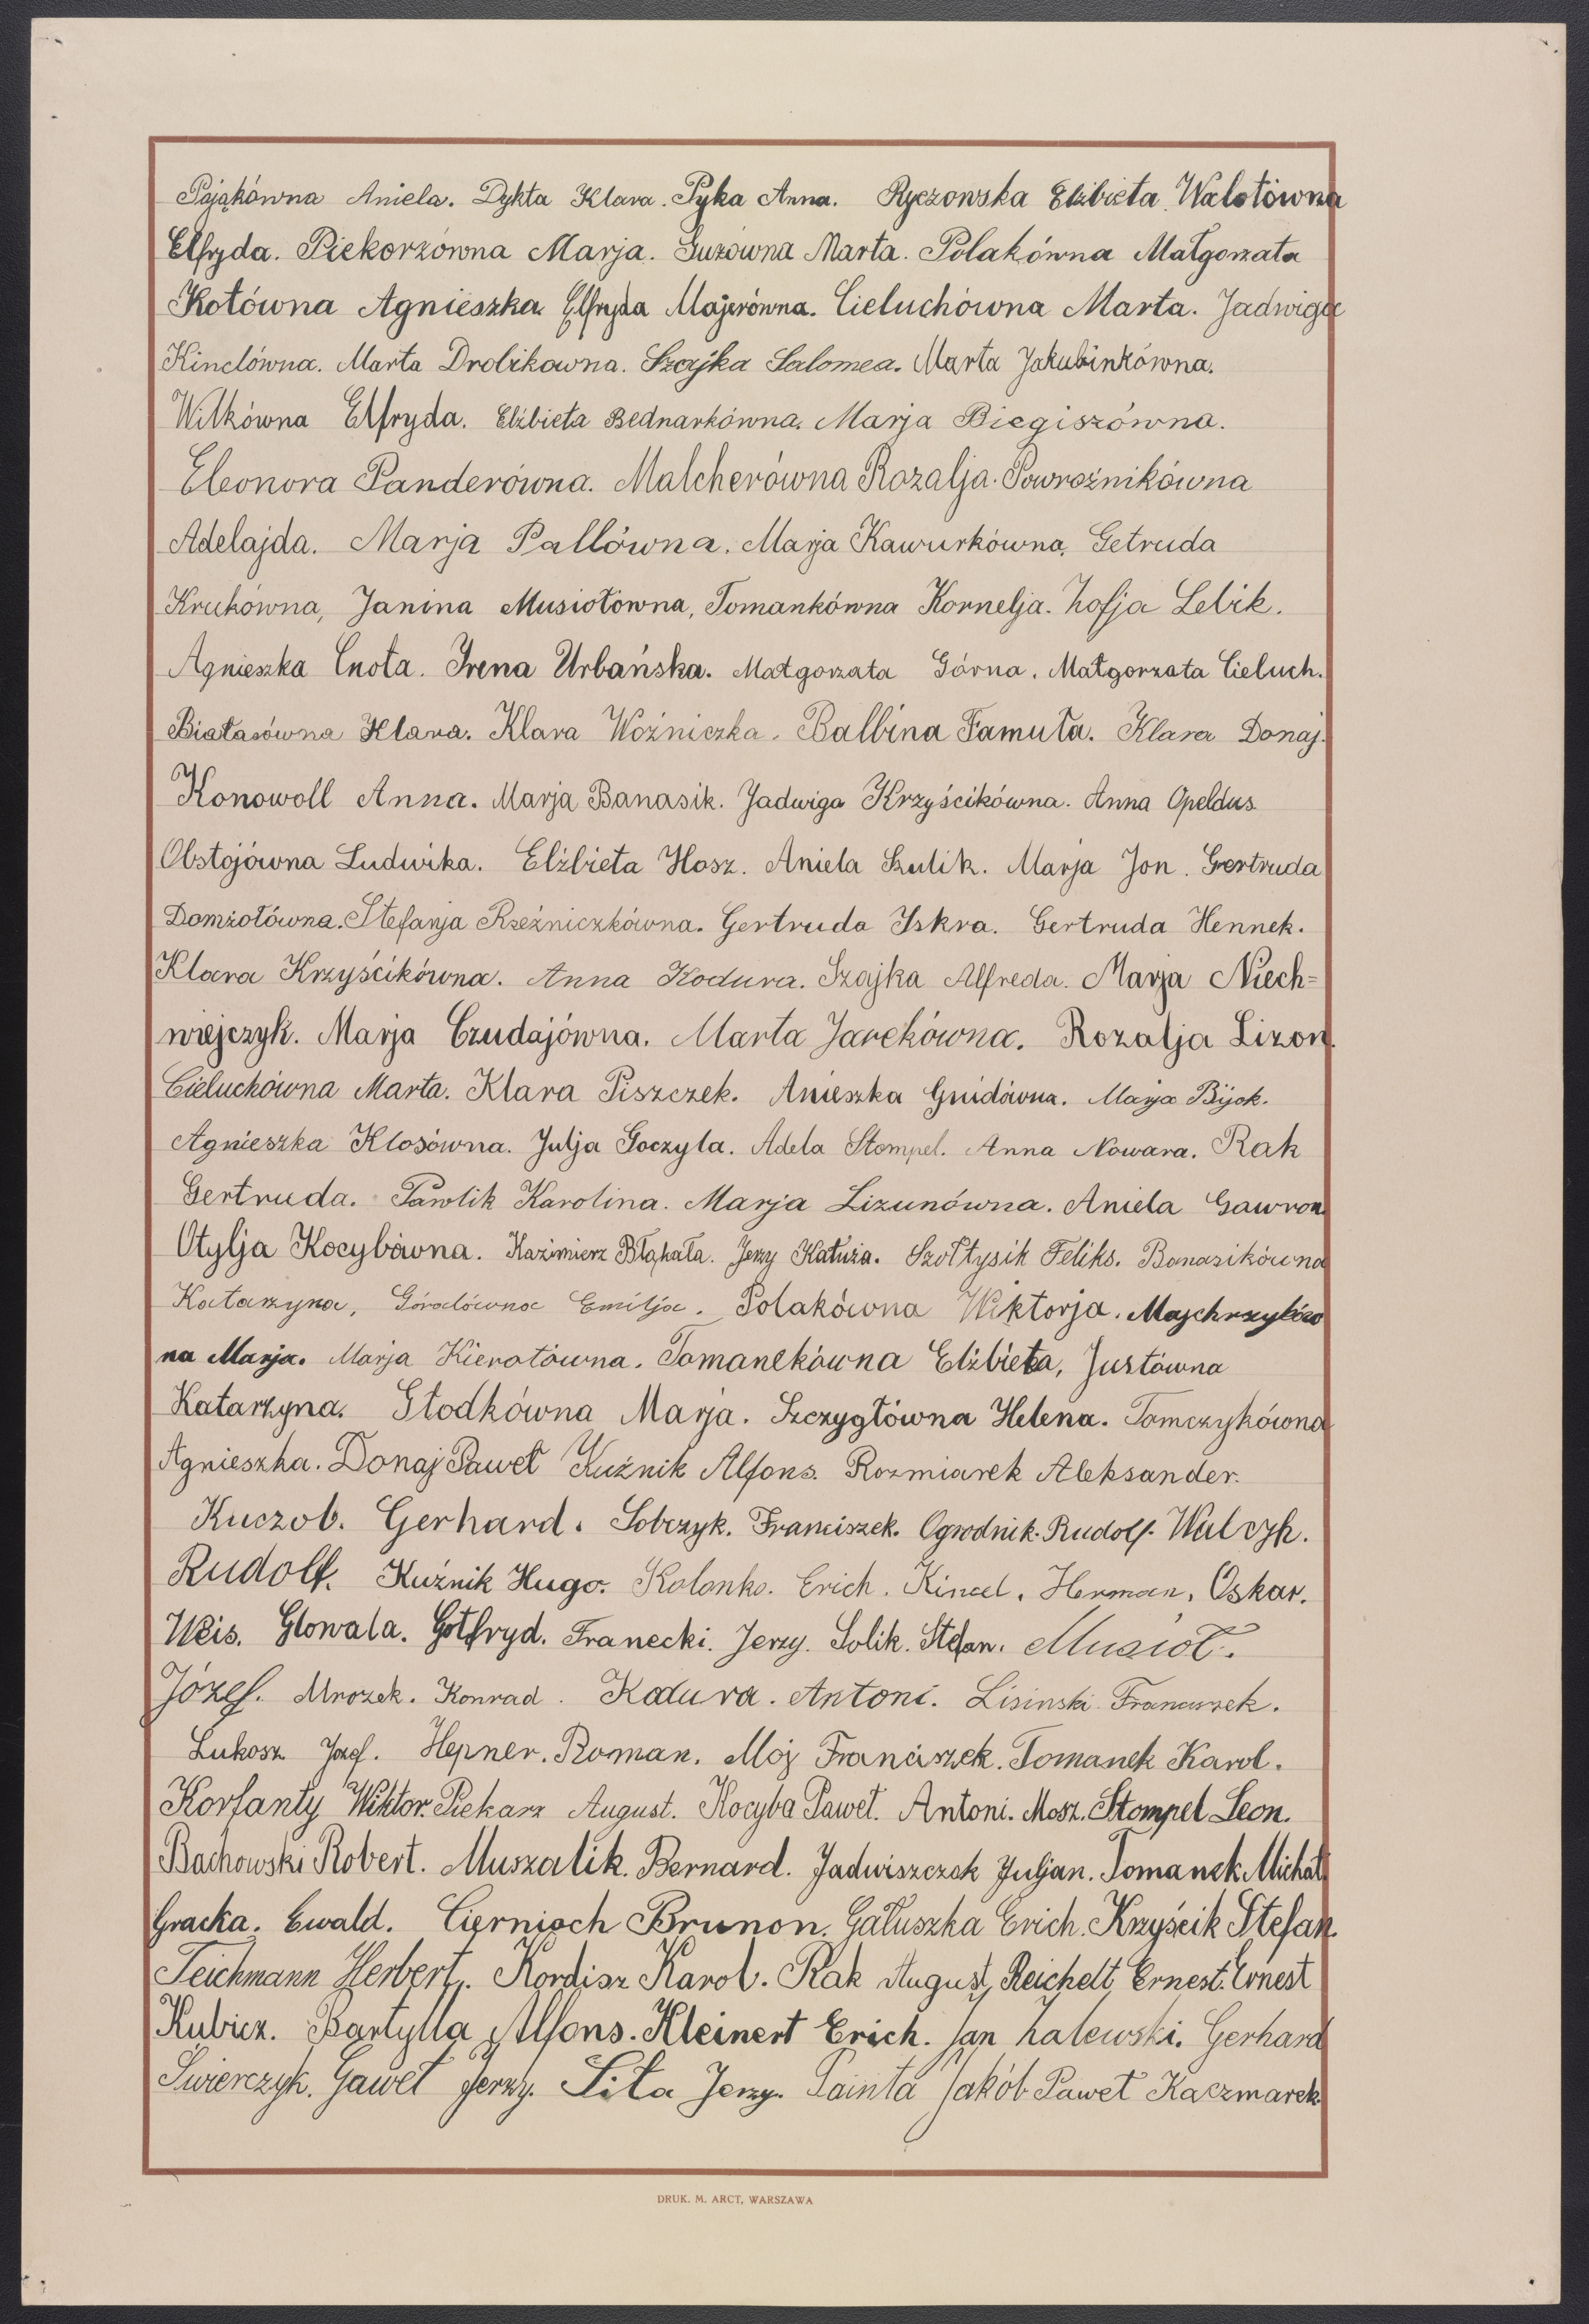 Pająkówna Aniela. Dykta Klara. Pyka Anna. Ryczowska Elżbieta. Walotówna
Elfryda. Piekorzówna Marja. Guzówna Marta. Polakówna Małgorzata
Kotówna Agnieszka. Elfryda Majerówna. Cieluchówna Marta. Jadwiga
Kinclówna. Marta Drobikowna. Szajka Salomea. Marta Jakubinkówna.
Wilkówna Elfryda. Elżbieta Bednarkówna. Marja Biegiszówna.
Eleonora Panderówna. Malcherówna Rozalja. Powroźnikówna
Adelajda. Marja Pallówna. Marja Kawurkówna, Getruda
Krukówna, Janina Musiołówna, Tomankówna Kornelja. Zofja Lebik.
Agnieszka Cnota. Irena Urbańska. Małgorzata Górna. Małgorzata Cieluch.
Białasówna Klara. Klara Woźniczka. Balbina Famuła. Klara Donaj.
Konowoll Anna. Marja Banasik. Jadwiga Krzyścikówna. Anna Opeldus
Obstojówna Ludwika. Elżbieta Hosz. Aniela Szulik. Marja Jon. Gertruda
Domżołówna. Stefanja Rzeźniczkówna. Gertruda Iskra. Gertruda Hennek.
Klara Krzyścikówna. Anna Kodura. Szajka Alfreda. Marja Niech=
wiejczyk. Marja Czudajówna. Marta Jarekówna. Rozalja Lizon.
Cieluchówna Marta. Klara Piszczek. Anieszka Gnidówna. Marja Bijok.
Agnieszka Klosówna. Julja Goczyla. Adela Stompel. Anna Nowara. Rak
Gertruda. Pawlik Karolina. Marja Lizunówna. Aniela Gawron
Otylja Kocybówna. Kazimierz Błąkała. Jerzy Kałuża. Szołtysik Feliks. Banasikówna
Katarzyna, Góralówna Emilja. Polakówna Wiktorja. Majchrzyków
na Marja. Marja Kierotówna. Tomanekówna Elżbieta, Justówna
Katarzyna. Głodkówna Marja. Szczygłówna Helena. Tomczykówna
Agnieszka. Donaj Paweł Kuźnik Alfons. Rozmiarek Aleksander.
Kuczob. Gerhard. Sobczyk. Franciszek. Ogrodnik. Rudolf. Walczyk.
Rudolf. Kuźnik Hugo. Kolonko. Erich. Kincel. Herman. Oskar.
Weis. Glowala. Gotfryd. Franecki. Jerzy. Solik. Stefan. Musioł.
Józef. Mrozek. Konrad. Kodura. Antoni. Lisinski Franciszek.
Lukosz Józef. Hepner. Roman. Moj Franciszek. Tomanek Karol.
Korfanty Wiktor. Piekarz August. Kocyba Paweł. Antoni. Mosz. Stompel Leon.
Bachowski Robert. Muszalik. Bernard. Jadwiszczok Juljan. Tomanek Michał
Gracka. Ewald. Ciernioch Brunon. Gałuszka Erich. Krzyścik Stefan.
Teichmann Herbert. Kordisz Karol. Rak August, Reichelt Ernest. Ernest
Kubicz. Bartylla Alfons. Kleinert Erich. Jan Zalewski. Gerhard
Świerczyk. Gaweł Jerzy. Sita Jerzy. Painta Jakób Paweł Kaczmarek.
DRUK. M. ARCT, WARSZAWA